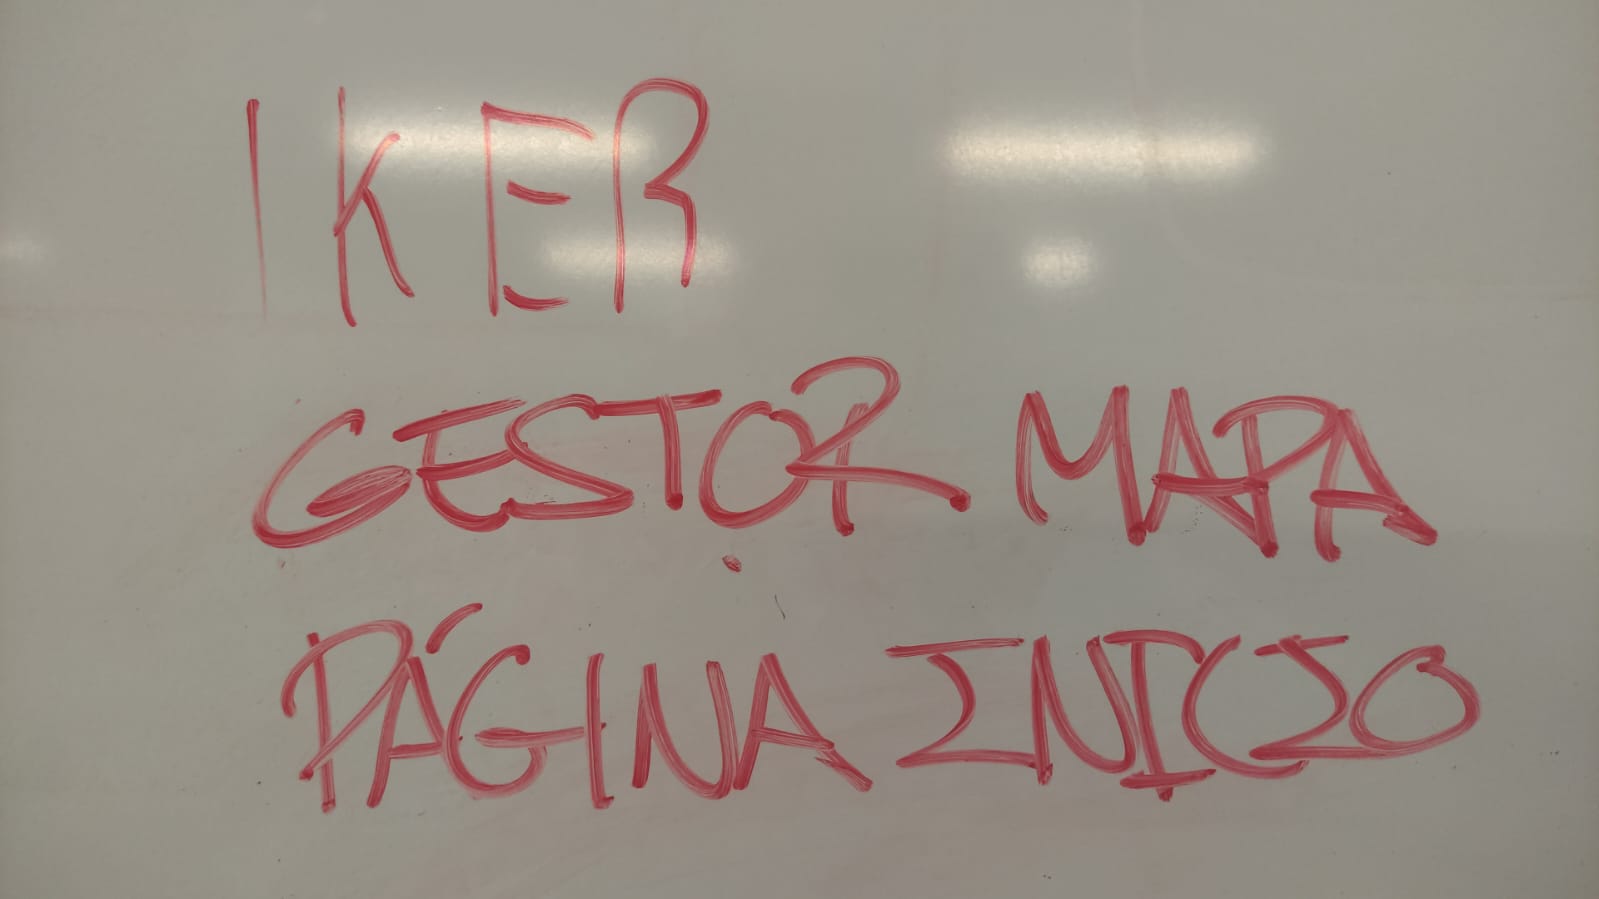 IKER
GESTOR MAPA
PÁGINA INICIO